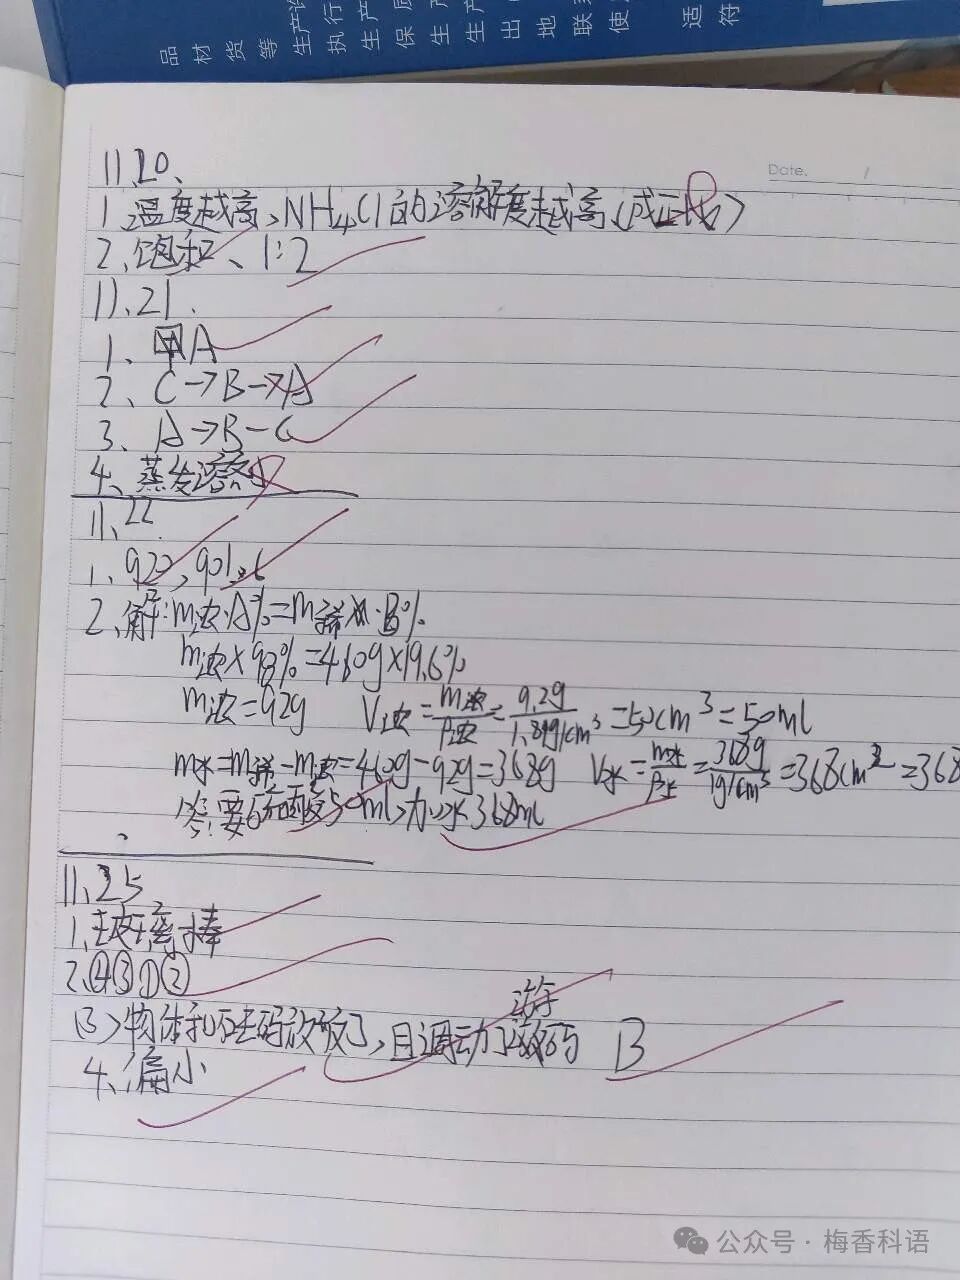 品 材 货 等 生产许 执行 生产 保质 生 生产 出 地 联系 使 适 符
Date. /
11.20、
1.温度越高,NH4Cl的溶解度越高(成正比)
2、饱和、1:2
11、21.
1、甲A
2、C→B→A
3、A→B-C
4、蒸发溶剂
11、22.
1、920,901.6
2、解:m浓·A%=m稀·B%
m浓×98%=460g×19.6%
m浓=92g V浓=m浓/ρ浓=92g/1.84g/cm³=50cm³=50ml
m水=m稀-m浓=460g-92g=368g V水=m水/ρ水=368g/1g/cm³=368cm³=368
答:要 50ml,加水368ml
11、25
1、玻璃棒
2、④③①②
(3)物体和砝码放反了,且调动了游码 B
4、偏小
公众号·梅香科语